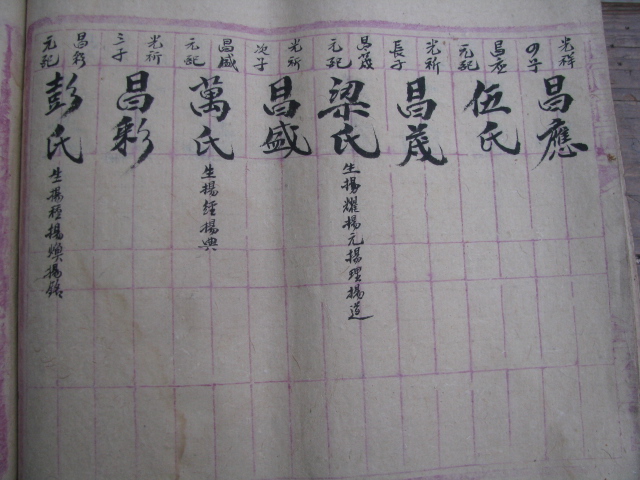 光祥の子
昌應
昌应元配
伍氏
光祈長子
昌茂
昌茂元配
梁氏
生揚耀揚元揚理揚道
光祈次子
昌盛
昌盛元配
萬氏
生揚經揚典
光祈三子
昌彩
昌彩元配
彭氏
生揚極揚煥揚銘